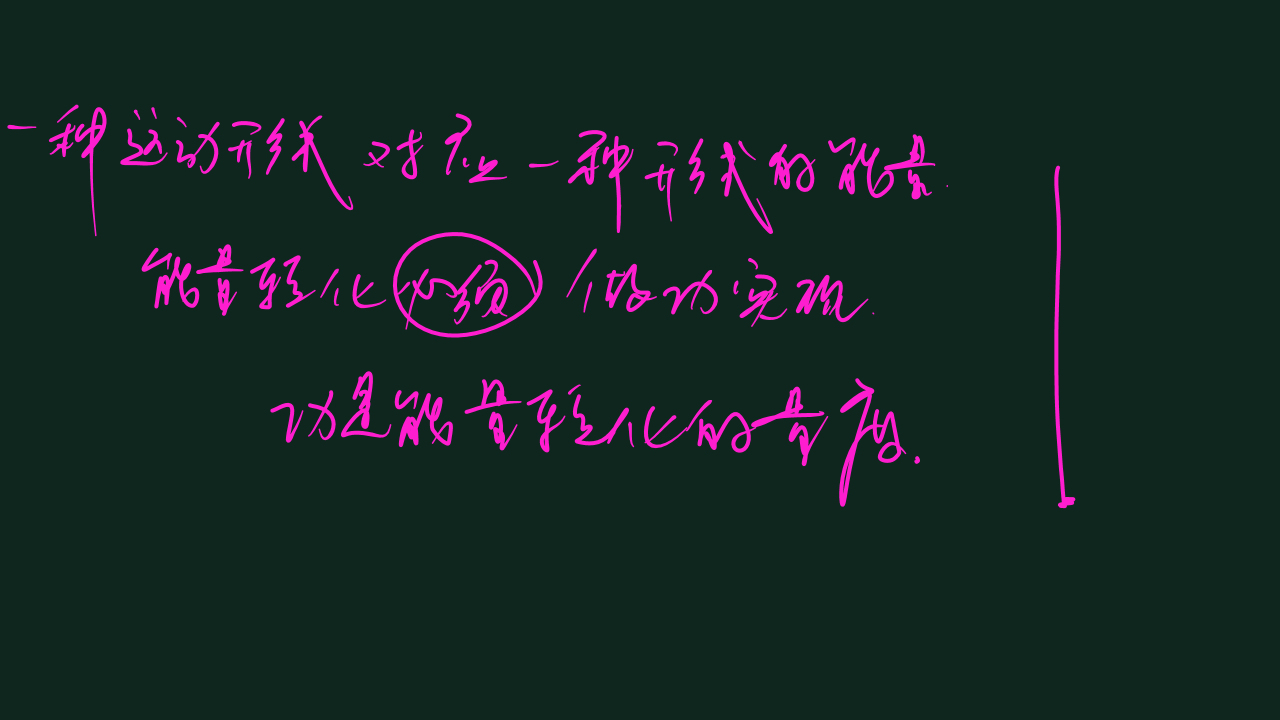 一种运动形式对应一种形式的能量.
能量转化必须做功实现.
功是能量转化的量度.